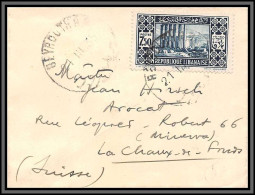 BEYROUTH
7.50
REPUBLIQUE LIBANAISE
Maître
Jean Hirsch
Avocat
Rue Léopold-Robert 66
(Minerva)
La Chaux-de-Fonds
(Suisse)